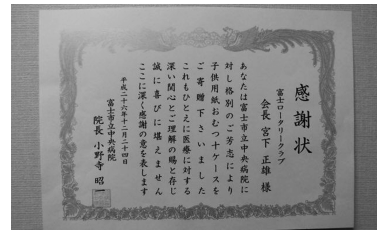 感謝状
富士ロータリークラブ
会長 宮下正雄 様
あなたは富士市立中央病院に
対し格別のご芳志により
子供用紙おむつ十ケースを
ご寄贈下さいました
これもひとえに医療に対する
深い関心とご理解の賜と存じ
誠に喜びに堪えません
ここに深く感謝の意を表します
平成二十六年十二月二十四日
富士市立中央病院
院長 小野寺昭一